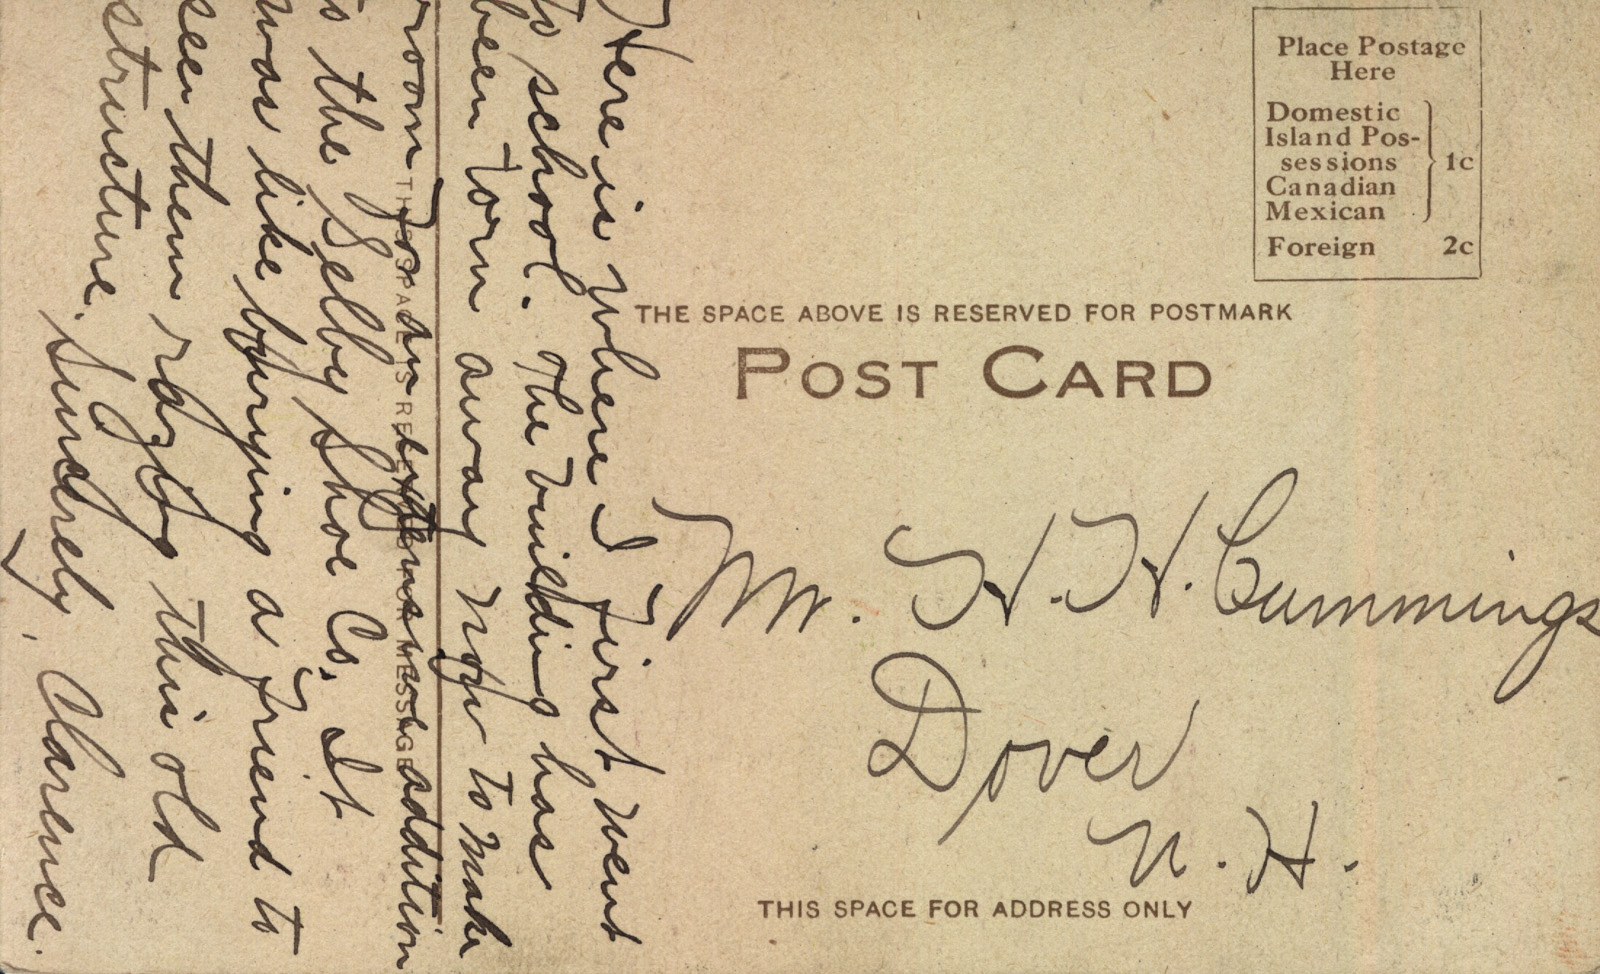 Place Postage
Here
Domestic
Island Pos-
sessions
Canadian
Mexican
1c
Foreign 2c
THE SPACE ABOVE IS RESERVED FOR POSTMARK
POST CARD
Mr. H. H. Cummings
Dover
N. H.
THIS SPACE FOR ADDRESS ONLY
Here is where I first went
to school. The building has
been torn away now to make
room for an expensive addition
to the Selby Shoe Co. It
was like burying a friend to
seen them razing this old
structure.
Sincerely, Clarence.